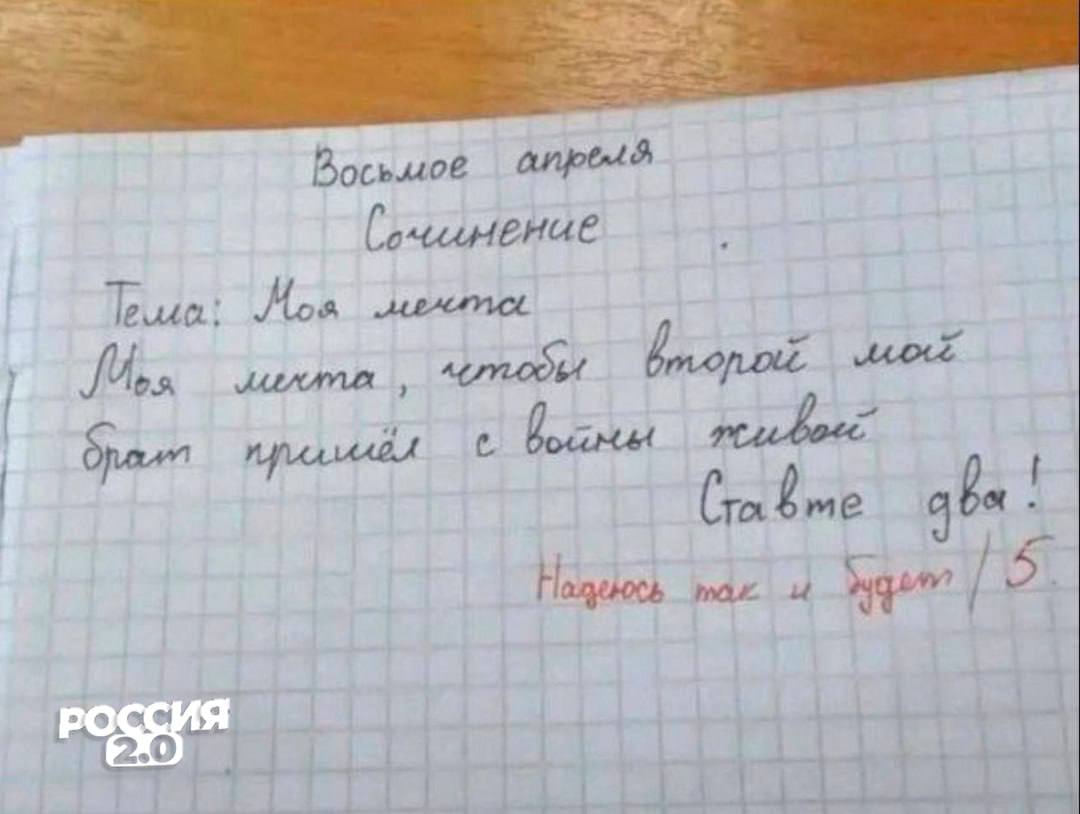 Восьмое апреля
Сочинение
Тема: Моя мечта
Моя мечта, чтобы второй мой
брат пришёл с войны живой
Ставте два!
Надеюсь так и будет / 5.
РОССИЯ
2.0